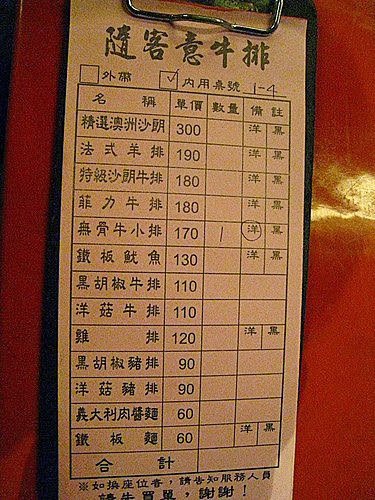 隨客意牛排
□外帶 ☑內用桌號 1-4
名稱 單價 數量 備註
精選澳洲沙朗 300 洋 黑
法式羊排 190 洋 黑
特級沙朗牛排 180 洋 黑
菲力牛排 180 洋 黑
無骨牛小排 170 1 洋 黑
鐵板魷魚 130 洋 黑
黑胡椒牛排 110
洋菇牛排 110
雞排 120 洋 黑
黑胡椒豬排 90
洋菇豬排 90
義大利肉醬麵 60
鐵板麵 60 洋 黑
合計
※如換座位者,請告知服務人員
請先買單,謝謝!